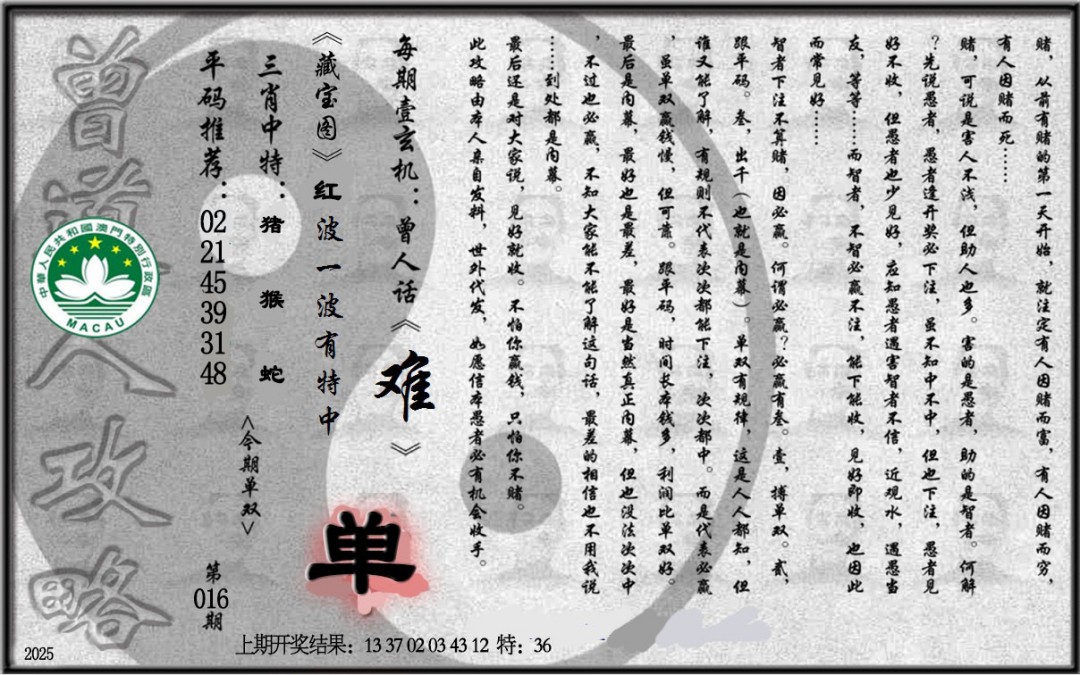 赌，从前有赌的第一天开始，就注定有人因赌而富，有人因赌而穷，
有人因赌而死……
赌，可说是害人不浅，但助人也多。害的是愚者，助的是智者。何解
？先说愚者，愚者逢开奖必下注，虽不知中不中，但也下注，愚者见
好不收，但愚者也少见好，应知愚者遇害智者不信，近观水，遇愚当
友，等等……而智者，不智必赢不注，能下能收，见好即收，也因此
而常见好……
智者下注不算赌，因必赢。何谓必赢？必赢有叁。壹，搏单双。贰，
跟平码。叁，出千（也就是内幕）。单双有规律，这是人人都知，但
谁又能了解，有规则不代表次次都能下注，次次都中。而是代表必赢
，虽单双赢钱慢，但可靠。跟平码，时间长本钱多，利润比单双好。
最后是内幕，最好也是最差，最好是当然真正内幕，但也没法次次中
，不过也必赢，不知大家能不能了解这句话，最差的相信也不用我说
……到处都是内幕。
最后还是对大家说，见好就收。不怕你赢钱，只怕你不赌。
此攻略由本人亲自发料，世外代发，如愿信本愚者必有机会收手。
每期壹玄机：曾人话《难》
《藏宝图》红波一波有特中
单
三肖中特：猪 猴 蛇
<今期单双>
平码推荐：02 21 45 39 31 48
第016期
曾道人攻略
中華人民共和國澳門特別行政區
MACAU
上期开奖结果：13 37 02 03 43 12 特：36
2025